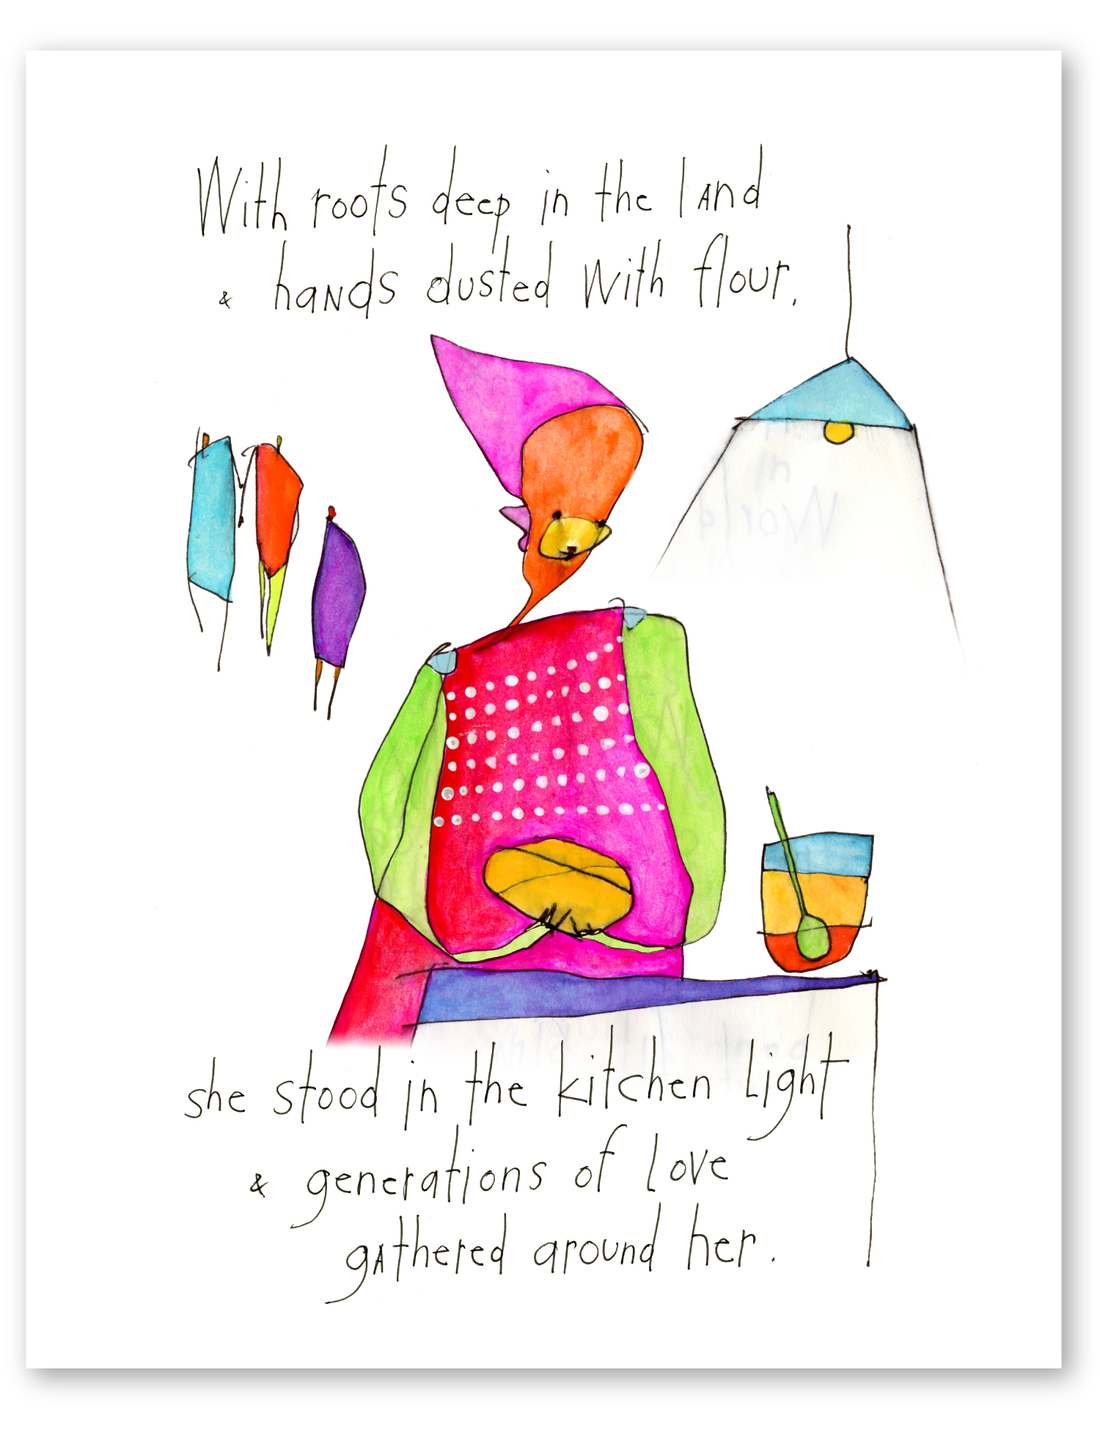 With roots deep in the land
& hands dusted with flour,
in
World
she stood in the kitchen light
& generations of love
gathered around her.